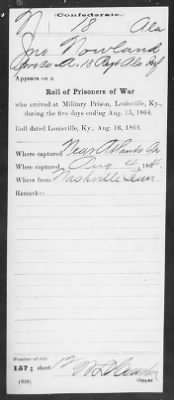 Confederate.
N 18 Ala
Jno Nowland
Co A. 18 Regt Ala Inf
Appears on a
Roll of Prisoners of War
who arrived at Military Prison, Louisville, Ky.,
during the five days ending Aug. 15, 1864.
Roll dated Louisville, Ky., Aug. 16, 1864.
Where captured Near Atlanta Ga
When captured Aug 4, 1864.
Where from Nashville Tenn
Remarks:
Number of roll:
157; sheet
Copyist.